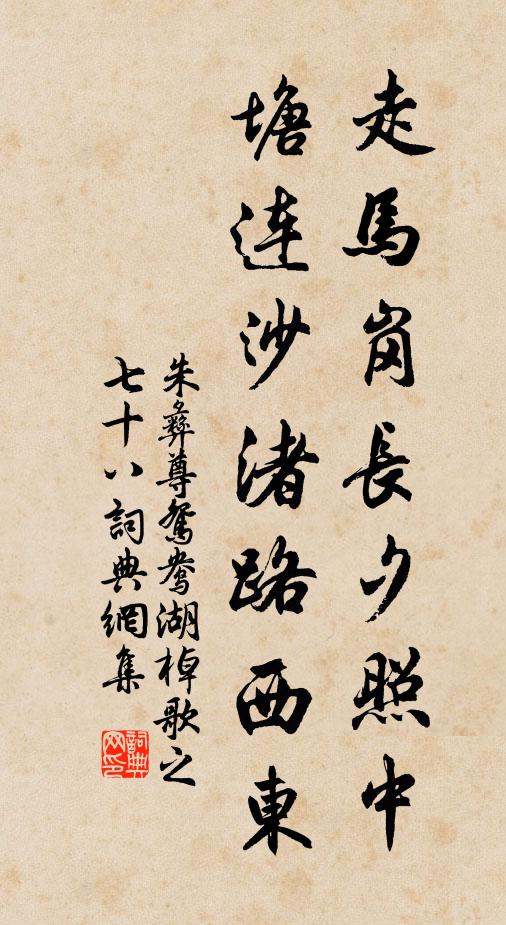 走馬崗長夕照中
塘連沙渚路西東
朱彝尊鴛鴦湖棹歌之
七十八詞典網集
詞典網印